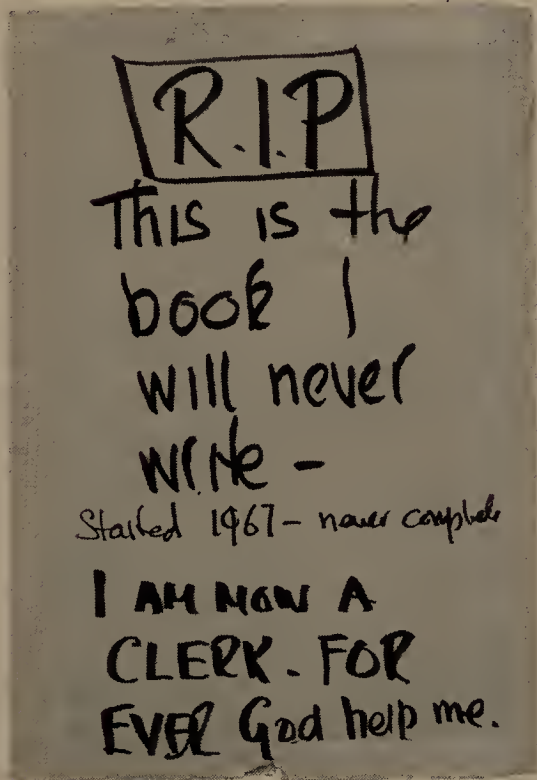 R.I.P
This is the
book I
will never
write -
Started 1967 - never complete
I AM NOW A
CLERK. FOR
EVER God help me.